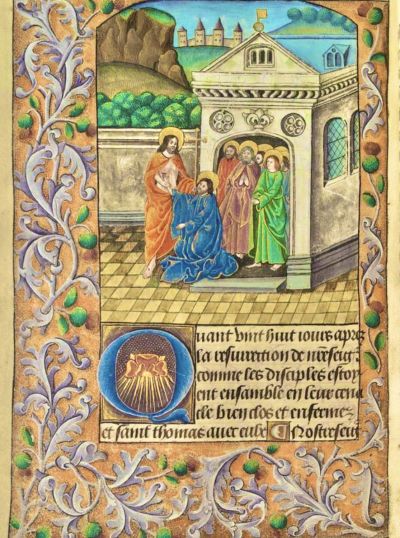 Quant vint huit iours apres
la resurrection de nreseigr
comme les disciples estoy
ent ensamble en leur cena
cle bien clos et enfermez
et saint thomas auec eulx ¶ Nostreseir